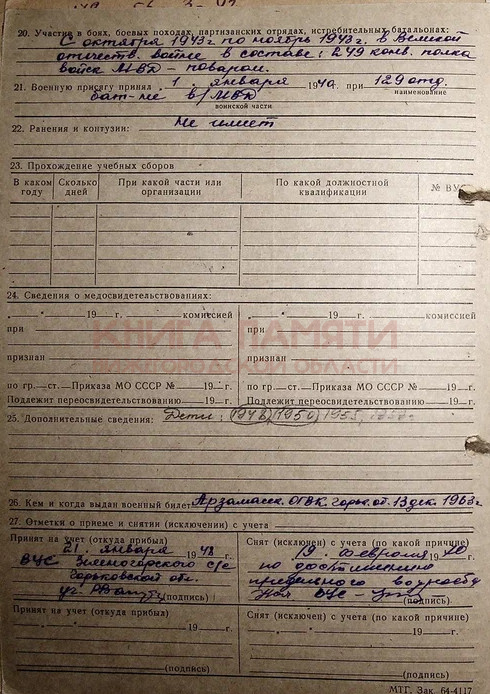 20. Участие в боях, боевых походах, партизанских отрядах, истребительных батальонах:
С октября 1943г по ноябрь 1943г. в Великой
отечеств. войне в составе: 249 конв. полка
войск МВД – поваром.
21. Военную присягу принял 1 января 194 г. при 129 отд.
наименование
бат-не в/МВД
воинской части
22. Ранения и контузии: Не имеет
23. Прохождение учебных сборов
В каком году Сколько дней При какой части или организации По какой должностной квалификации № ВУС
24. Сведения о медосвидетельствованиях:
„ . " 19 г. комиссией „ . " 19 г. комиссией
при при
признан признан
по гр. ст. Приказа МО СССР № 19 г. по гр. ст. Приказа МО СССР № 19 г.
Подлежит переосвидетельствованию 19 г. Подлежит переосвидетельствованию 19 г.
КНИГА ПАМЯТИ
НИЖЕГОРОДСКОЙ ОБЛАСТИ
25. Дополнительные сведения: Дети: 1948, 1950, 1955,
26. Кем и когда выдан военный билет Арзамасск. ОГВК. горьк. от. 13 дек. 1963 г
27. Отметки о приеме и снятии (исключении) с учета
Принят на учет (откуда прибыл)
21. января 1948
ВУС с/с
Горьковской обл.
(подпись)
Снят (исключен) с учета (по какой причине)
19. февраля 19 г.
по достижении
предельного возраста
ВУС
(подпись)
Принят на учет (откуда прибыл) Снят (исключен) с учета (по какой причине)
19 г. 19 г.
(подпись) (подпись)
МТГ. Зак. 64-4117